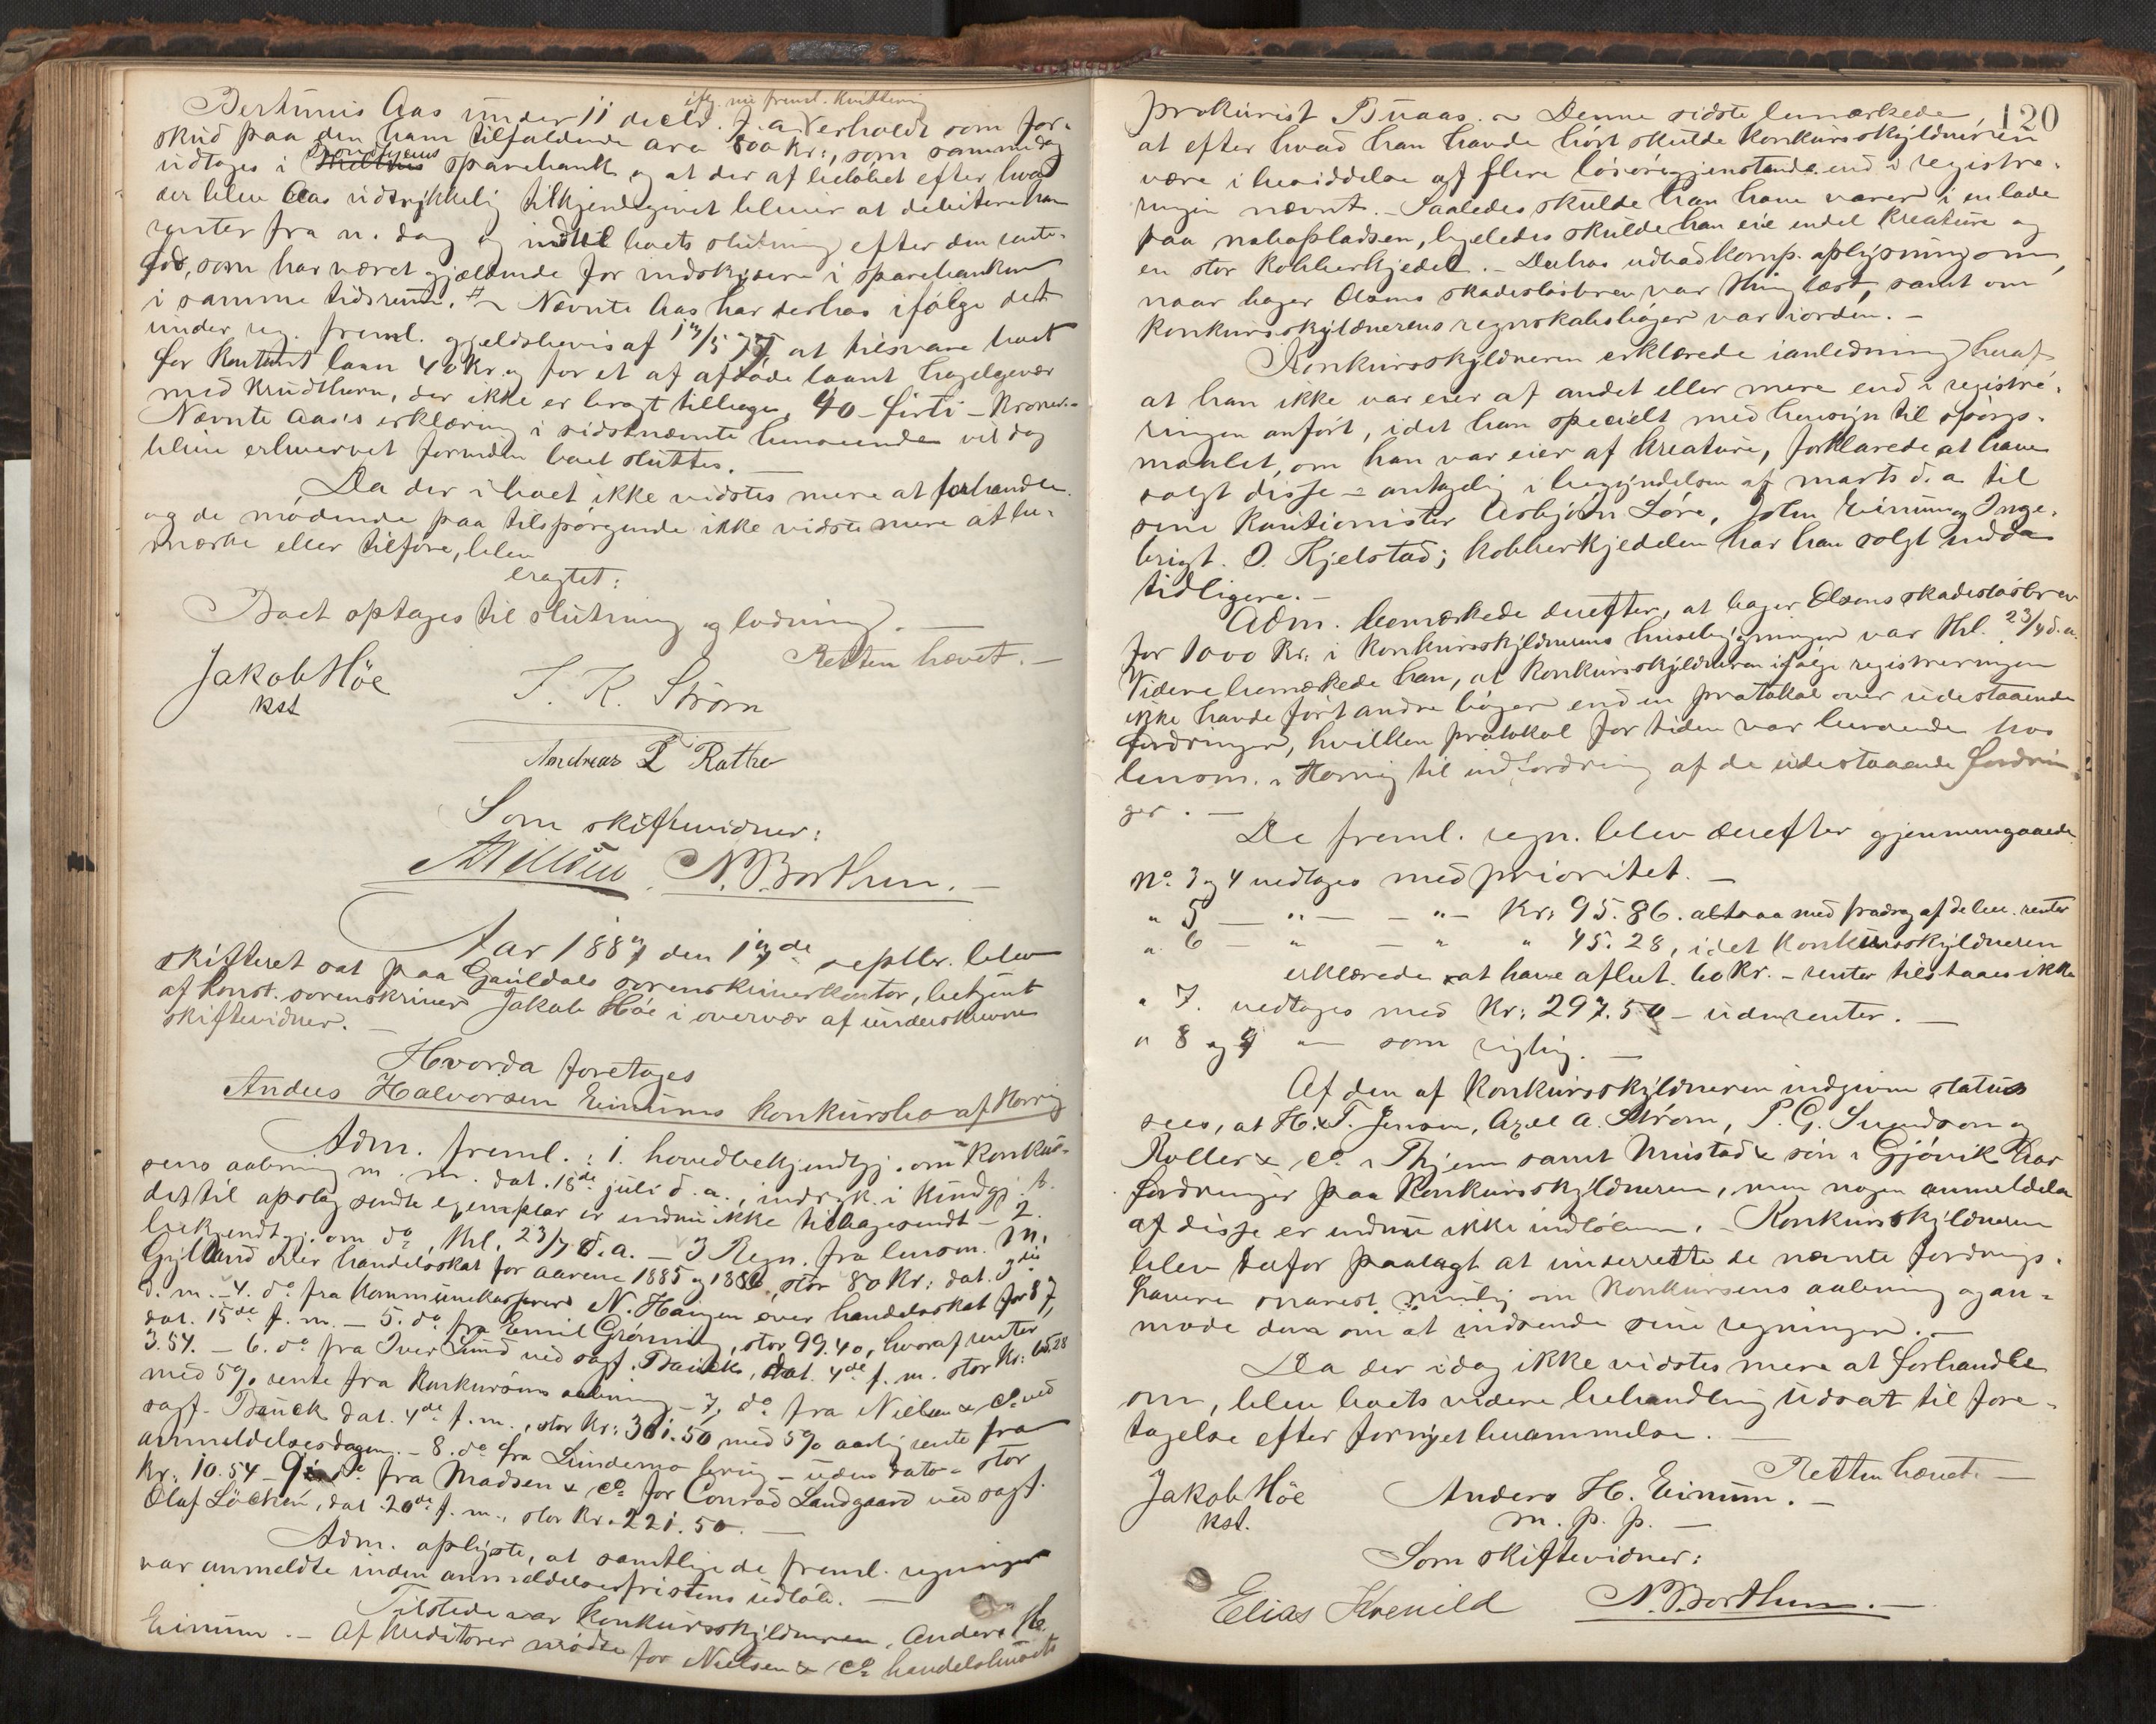 iflg. nu freml. kvittering
Bertinus Aas under 11 decbr. f. a. erholdt som for-
skud paa den ham tilfaldende arv 800 kr:, som samme dag
udtoges i Trondhjems sparebank og at der af beløbet efter hvad
der blev Aas udtrykkelig tilkjendegivet bliver at debitere ham
renter fra n. dag og indtil boets slutning efter den rente-
fod, som har været gjældende for indskydere i sparebanken
i samme tidsrum. # Nævnte Aas har derhos ifølge det
under reg. freml. gjeldsbevis af 17/5 77, at tilsvare boet
for kontant laan 40 kr. og for et af afdøde laant hagelgevær
med krudthorn, der ikke er bragt tilbage, 40 - firti - kroner. -
Nævnte Aas's erklæring i sidstnævnte henseende vil dog
blive erhvervet forinden boet sluttes. —
Da der i boet ikke vidstes mere at forhandle
og de mødende paa tilspørgende ikke vidste mere at be-
mærke eller tilføre, blev
eragtet:
Boet optages til slutning og lodning. —
Retten hævet. —
Jakob Höe
kst
T. K. Strøm
Andreas L Rathe
Som skiftevidner:
N. Borthen. —
Aar 1887 den 17de septbr. blev
skifteret sat paa Gauldals sorenskriverkontor, betjent
af konst. sorenskriver Jakob Höe i overvær af underskrevne
skiftevidner. —
Hvorda foretoges
Anders Halvorsen Einums konkursbo af Horrig
Adm. freml.: 1. hovedbekjendtgj. om konkur-
sens aabning m. m. dat. 18de juli d. a., indryk. i Kundgj. t.
det til opslag sendte exemplar er endnu ikke tilbagesendt - 2.
bekjendtgj. om do, thl. 23/7 d. a. - 3 Regn. fra lensm. M.
Gylland over handelsskat for aarene 1885 og 1886, stor 80 kr: dat. 3die
d. m. - 4. do fra kommunekasserer N. Haugen over handelsskat for 87,
dat. 15de f. m. - 5. do fra Emil Grönning, stor 99.40, hvoraf renter
3.54. - 6. do fra Iver Lund ved sagf. Bauck, dat. 4de f. m. stor kr: 65.28
med 5% rente fra konkursens aabning - 7, do fra Nielsen & Co ved
sagf. Bauck dat. 4de f. m., stor kr: 301.50 med 5% aarlig rente fra
anmeldelsesdagen. - 8. do fra Lundemo brug - uden dato - stor
kr: 10.54 - 9 do fra Madsen & Co for Conrad Landgaard ved sagf.
Olaf Löcken, dat. 20de f. m., stor kr. 221.50. —
Adm. oplyste, at samtlige de freml. regninger
var anmeldte inden anmeldelsesfristens udløb. —
Tilstede var konkursskyldneren, Anders H.
Einum. - Af kreditorer mødte for Nielsen & Co handelshusets
120
prokurist Buaas. - Denne sidste bemærkede,
at efter hvad han havde hørt skulde konkursskyldneren
være i besiddelse af flere løsøregjenstande end i registre-
ringen nævnt. - Saaledes skulde han have varer i en lade
paa nabopladsen, ligeledes skulde han eie endel kreature og
en stor kobberkjedel. - Derhos udbad komp. oplysning om,
naar bager Olsens skadesløsbrev var thinglæst, samt om
konkursskyldnerens regnskabsbøger var iorden. -
Konkursskyldneren erklærede i anledning heraf
at han ikke var eier af andet eller mere end i registre-
ringen anført, idet han specielt med hensyn til spørgs-
maalet, om han var eier af kreature, forklarede at have
solgt disse - antagelig i begyndelsen af marts d. a. til
sine kautionister Asbjørn Løre, John Einum og Inge-
brigt O. Kjelstad; kobberkjedelen har han solgt endda
tidligere. -
Adm. bemærkede derefter, at bager Olsens skadesløsbrev
for 1000 kr: i konkursskyldnerens husebygninger var thl. 23/4 d. a.
Videre bemærkede han, at konkursskyldneren ifølge registreringen
ikke havde ført andre bøger end en protokol over udestaaende
fordringer, hvilken protokol for tiden var beroende hos
lensm. i Horrig til indfordring af de udestaaende fordrin-
ger. —
De freml. regn. blev derefter gjennemgaaede.
No. 3 og 4 vedtoges med prioritet. —
" 5 — " — — " — Kr: 95.86. altsaa med fradrag af de ber. renter
" 6 — " — " " 45.28, idet konkursskyldneren
erklærede at have afbet. 60 kr. - renter tilstaaes ikke
" 7. vedtoges med kr: 297.50 - uden renter. —
" 8 og 9 — som rigtig. —
Af den af konkursskyldneren indgivne status
sees, at H. & F. Jenson, Axel A. Strøm, P. G. Svendson og
Roller & Co i Thjem samt Mustad & søn i Gjøvik har
fordringer paa konkursskyldneren, men nogen anmeldelse
af disse er endnu ikke indløben. - Konkursskyldneren
blev derfor paalagt at underrette de nævnte fordrings-
havere snarest mulig om konkursens aabning og an-
mode dem om at indsende sine regninger. —
Da der idag ikke vidstes mere at forhandle
om, blev boets videre behandling udsat til fore-
tagelse efter fornyet berammelse. —
Retten hævet. —
Jakob Höe
kst.
Anders H. Einum. -
m. p. p. —
Som skiftevidner:
Elias Kvenild
N. Borthen. —